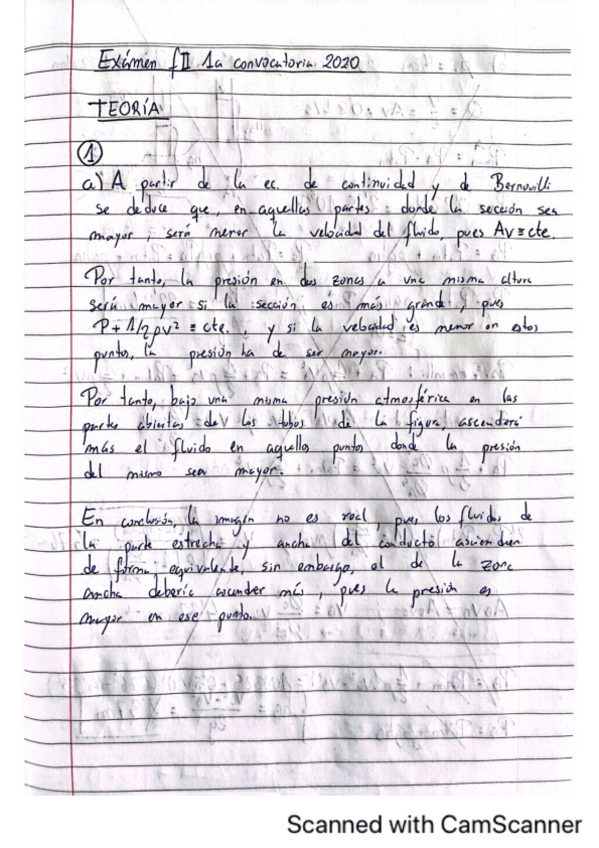 Exámen fII 1a convocatoria 2020
TEORÍA
1
a) A partir de la ec. de continuidad y de Bernouilli
se deduce que, en aquellas partes donde la sección sea
mayor, será menor la velocidad del fluido, pues Av≡cte.
Por tanto, la presión en dos zonas a una misma altura
será mayor si la sección es más grande, pues
P + 1/2 ρv² ≡ cte., y si la velocidad es menor en estos
puntos, la presión ha de ser mayor.
Por tanto, bajo una misma presión atmosférica en las
partes abiertas de los tubos de la figura, ascenderá
más el fluido en aquellos puntos donde la presión
del mismo sea mayor.
En conclusión, la imagen no es real, pues los fluidos de
la parte estrecha y ancha del conducto ascienden
de forma equivalente, sin embargo, el de la zona
ancha debería ascender más, pues la presión es
mayor en ese punto.
Scanned with CamScanner